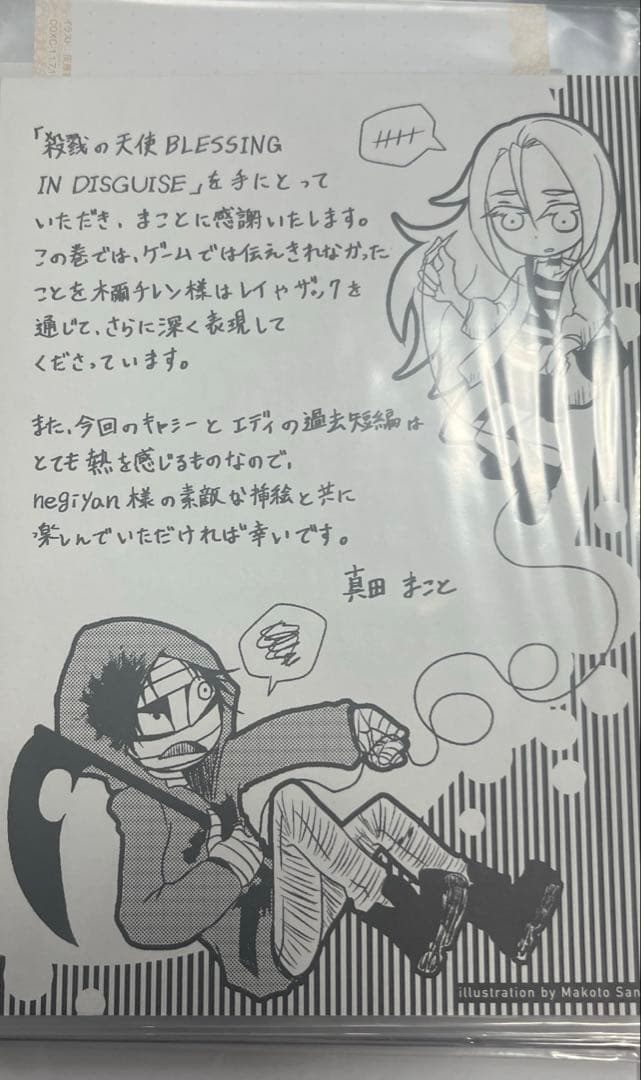 「殺戮の天使 BLESSING
IN DISGUISE」を手にとって
いただき、まことに感謝いたします。
この巻では、ゲームでは伝えきれなかった
ことを木爾チレン様はレイやザックを
通じて、さらに深く表現して
くださっています。
また、今回のキャシーとエディの過去短編は
とても熱を感じるものなので、
negiyan様の素敵な挿絵と共に
楽しんでいただければ幸いです。
真田 まこと
illustration by Makoto San